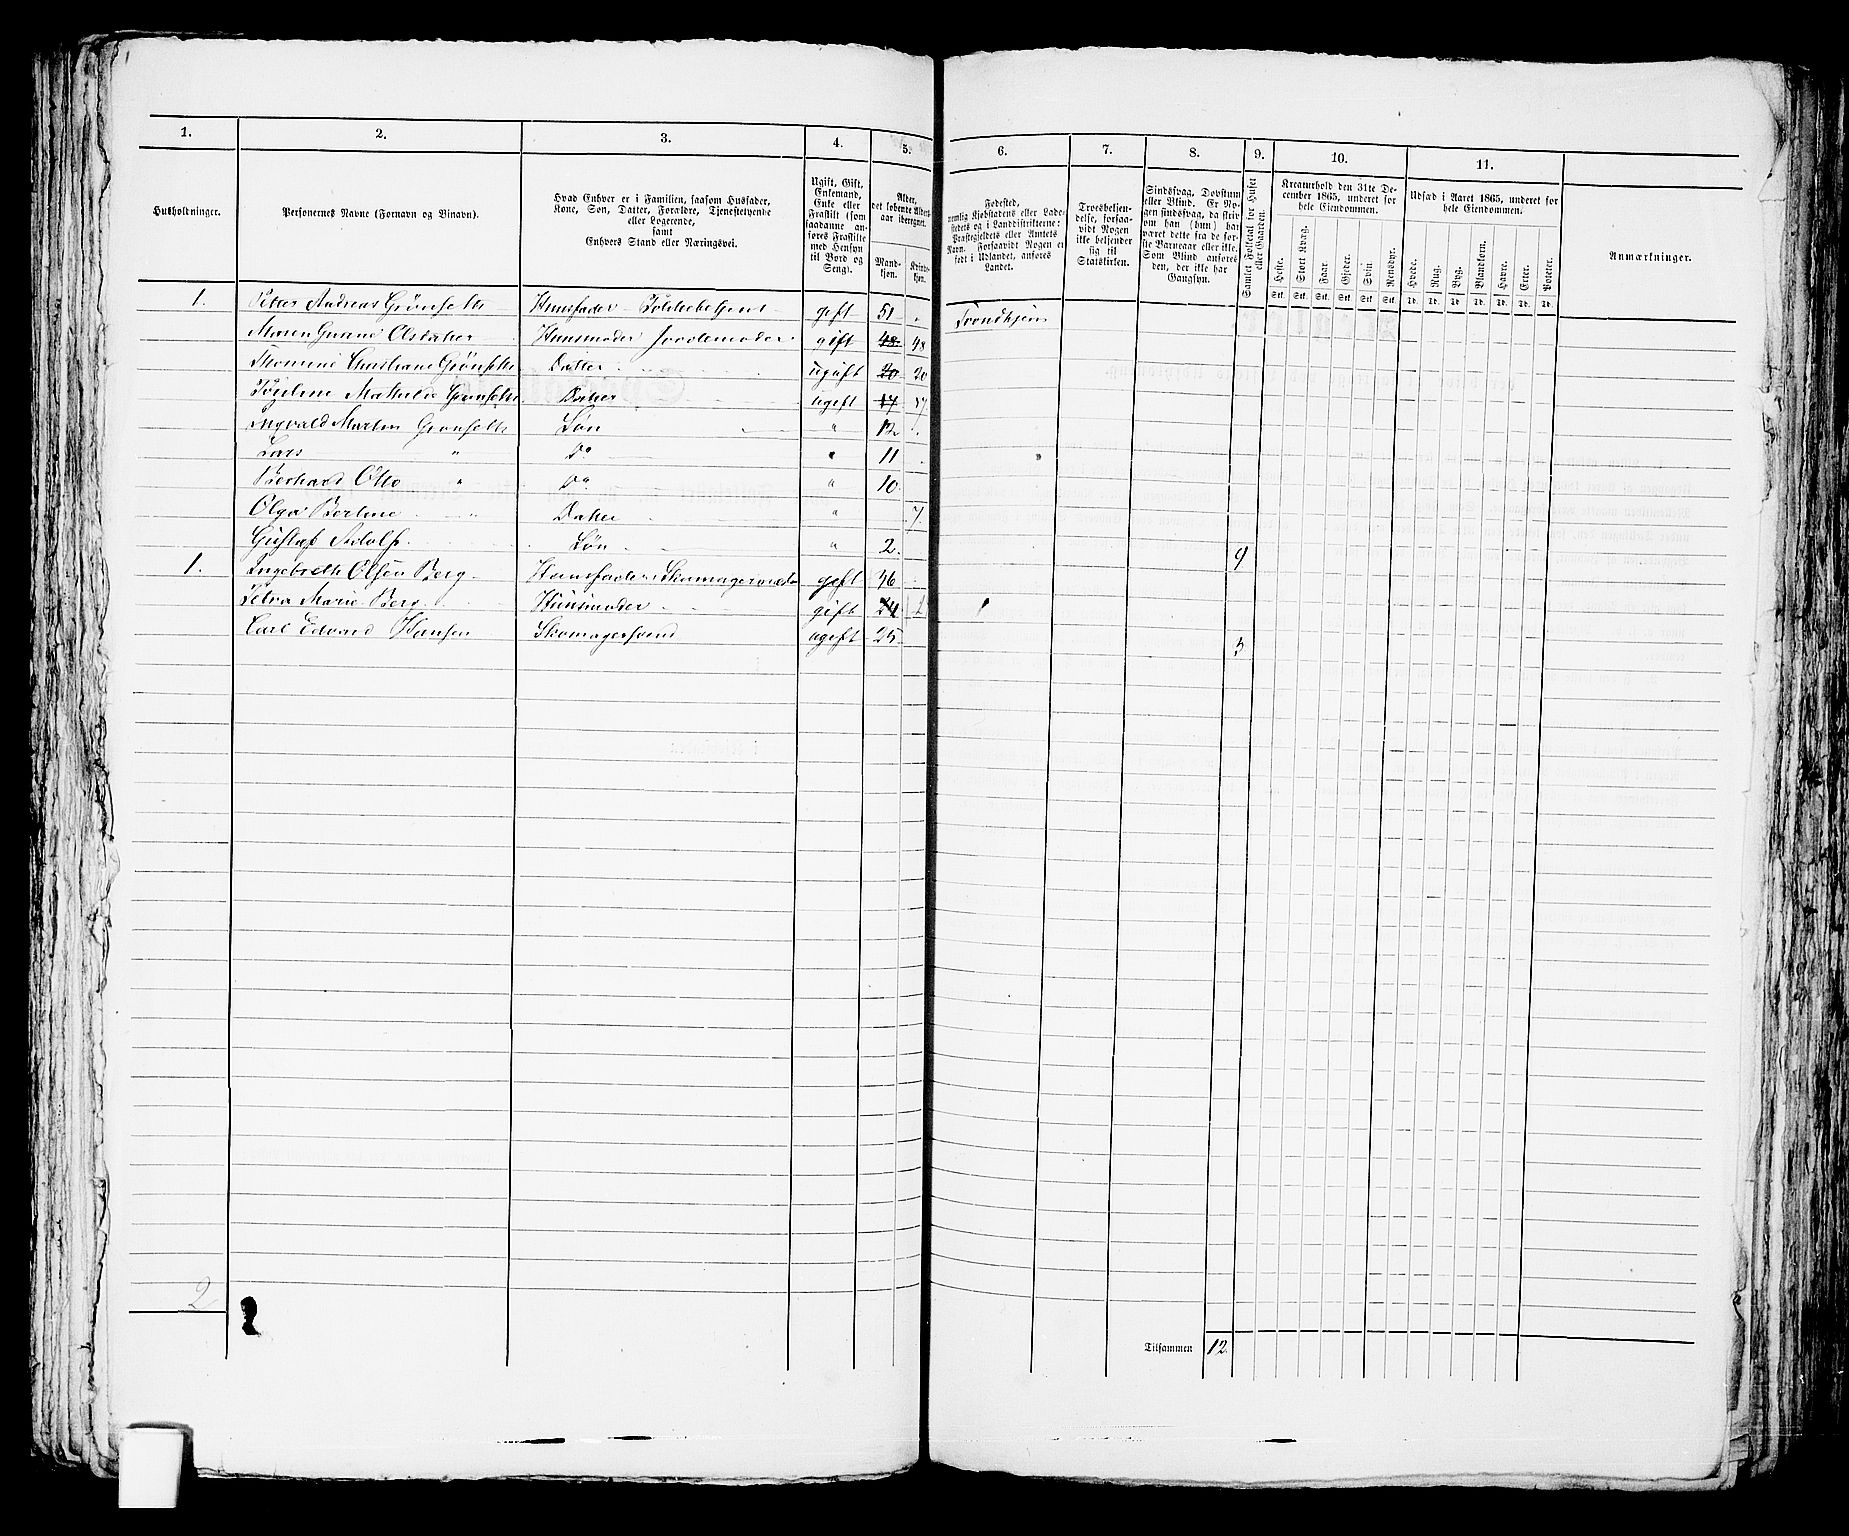 1. 2. 3. 4. 5. 6. 7. 8. 9. 10. 11.
Husholdninger.
Personernes Navne (Fornavn og Binavn).
Hvad Enhver er i Familien, saasom Husfader,
Kone, Søn, Datter, Forældre, Tjenestetyende
eller Logerende,
samt
Enhvers Stand eller Næringsvei.
Ugift, Gift,
Enkemand,
Enke eller
Fraskilt (som
saadanne an-
føres Fraskilte
med Hensyn
til Bord og
Seng).
Alder,
det løbende Alders-
aar iberegnet.
Mand-
kjøn.
Kvinde-
kjøn.
Fødested,
nemlig Kjøbstadens eller Lade-
stedets og i Landdistrikterne:
Præstegjeldets eller Amtets
Navn. Forsaavidt Nogen er
født i Udlandet, anføres
Landet.
Troesbekjen-
delse, forsaa-
vidt Nogen
ikke bekjender
sig til
Statskirken.
Sindssvag, Døvstum
eller Blind. Er No-
gen sindssvag, da skriv
om han (hun) har
været dette fra de før-
ste Barneaar eller ikke.
Som Blind anføres
den, der ikke har
Gangsyn.
Samlet Folketal for Huset
eller Gaarden.
Kreaturhold den 31te De-
cember 1865, underet for
hele Eiendommen.
Heste. Stort Kvæg. Faar. Gjeder. Svin. Rensdyr.
Stk. Stk. Stk. Stk. Stk. Stk.
Udsæd i Aaret 1865, underet for
hele Eiendommen.
Hvede. Rug. Byg. Blandkorn. Havre. Erter. Poteter.
Td. Td. Td. Td. Td. Td. Td.
Anmærkninger.
1. Peter Andreas Grønseth Huusfader Toldbetjent gift 51 Trondhjem
Maren Olsdatter Huusmoder Jordemoder gift 48 48
Christiane Grønseth Datter ugift 20 20
Mathilde Grønseth Datter ugift 17 17
Ingvald Martin Grønseth Søn " 12
Lars " Do " 11
Berhard Otto " Do " 10
Olga Berline " Datter " 7
Gustaf Adolf Søn " 2 9
1. Ingebreth Olsen Berg Huusfader Skomager gift 36
Petra Marie Berg Huusmoder gift 24
Carl Edvard Hansen Skomagersvend ugift 25 3
2
Tilsammen 12.